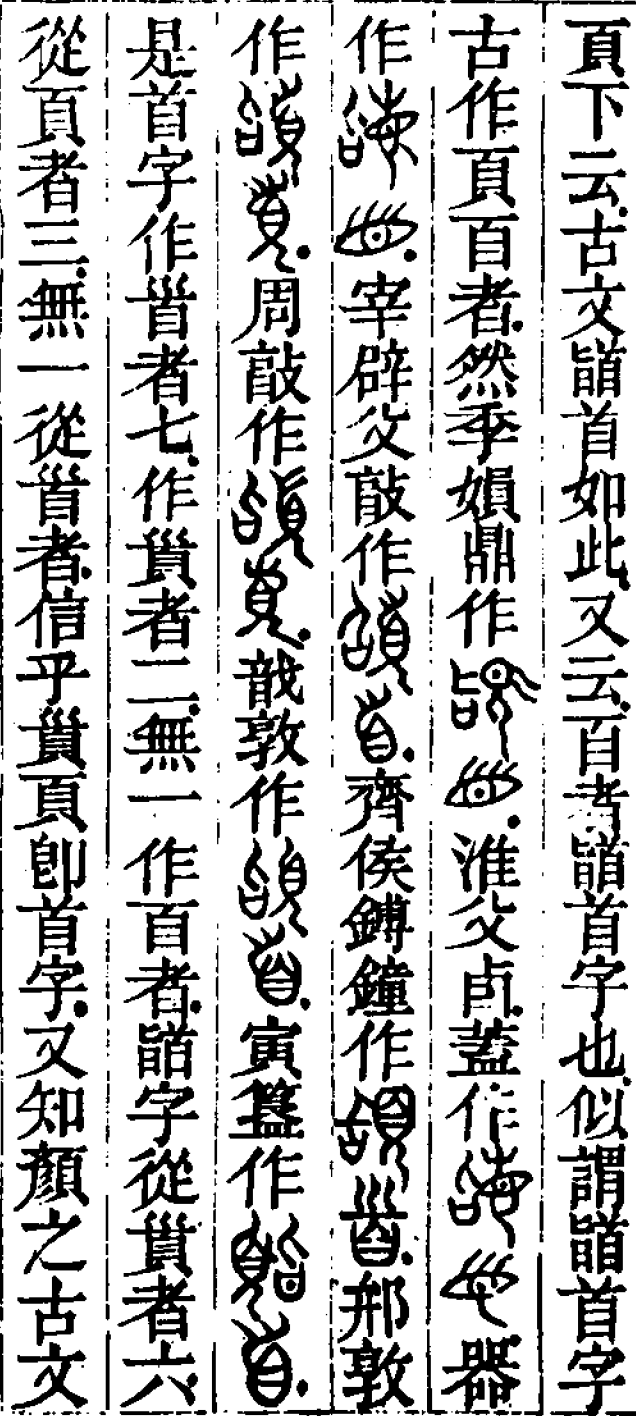 頁下云古文𩠐首如此又云𦣻者𩠐首字也似謂𩠐首字
古作頁𦣻者然季㜏鼎作淮父卣蓋作器
作宰辟父作齊侯鎛鐘作邢敦
作周作敦作寅簋作
是首字作者七作者二無一作𦣻者𩠐字從者六
從頁者三無一從者信乎頁即首字又知顏之古文